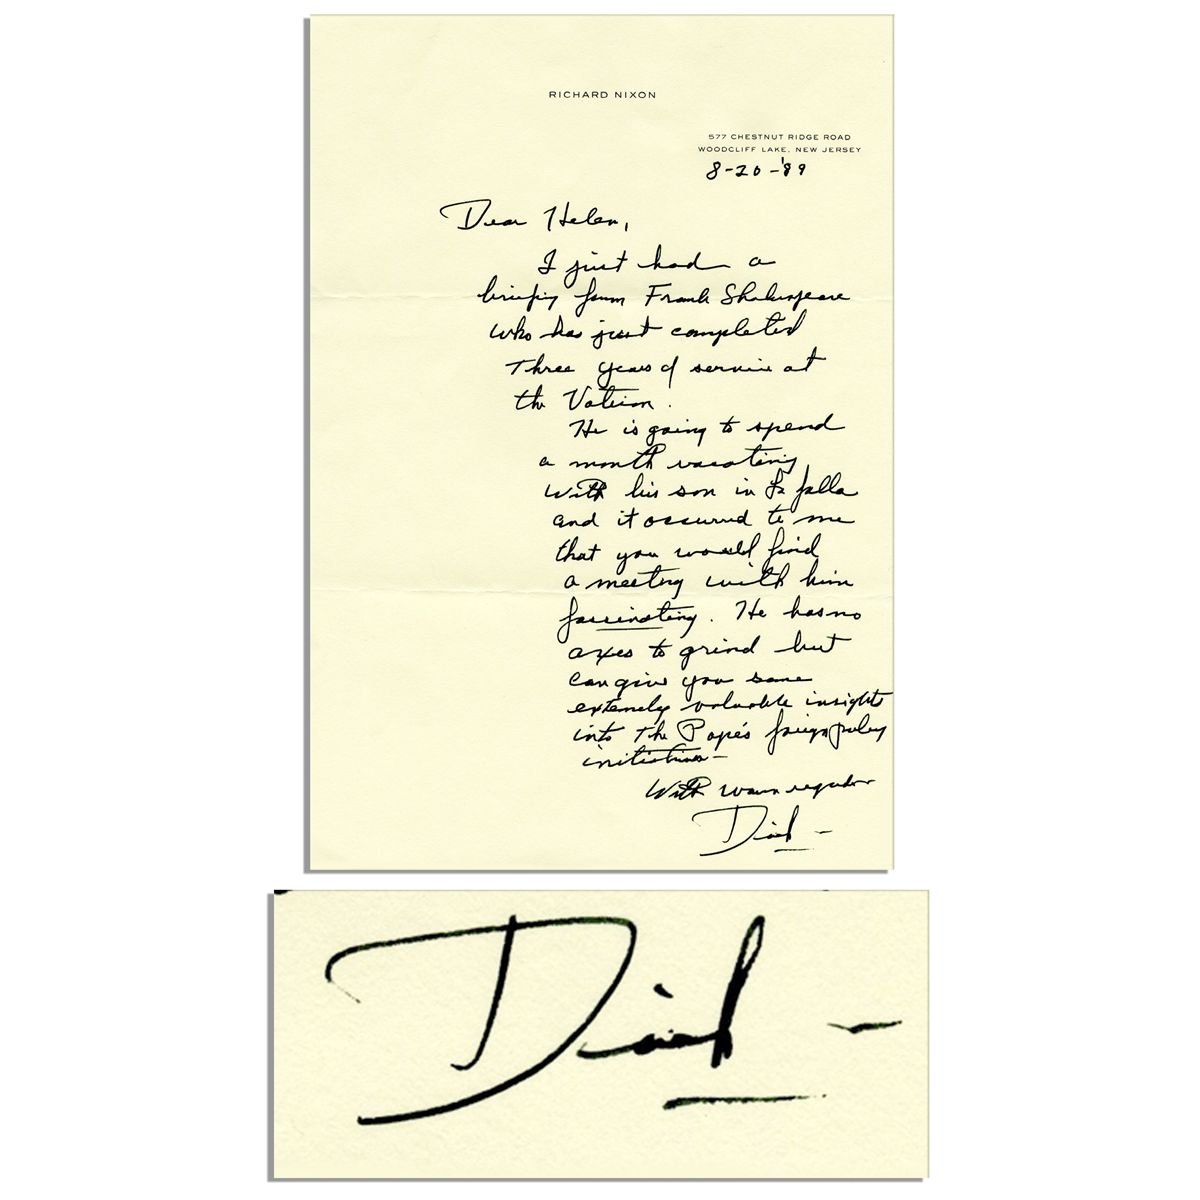 RICHARD NIXON
577 CHESTNUT RIDGE ROAD
WOODCLIFF LAKE, NEW JERSEY
8-20-'89
Dear Helen,
I just had a
briefing from Frank Shakespeare
who has just completed
three years of service at
the Vatican.
He is going to spend
a month vacationing
with his son in La Jolla
and it occurred to me
that you would find
a meeting with him
fascinating. He has no
axes to grind but
can give you some
extremely valuable insights
into the Pope's foreign policy
initiatives -
With warm regards
Dick -
Dick -